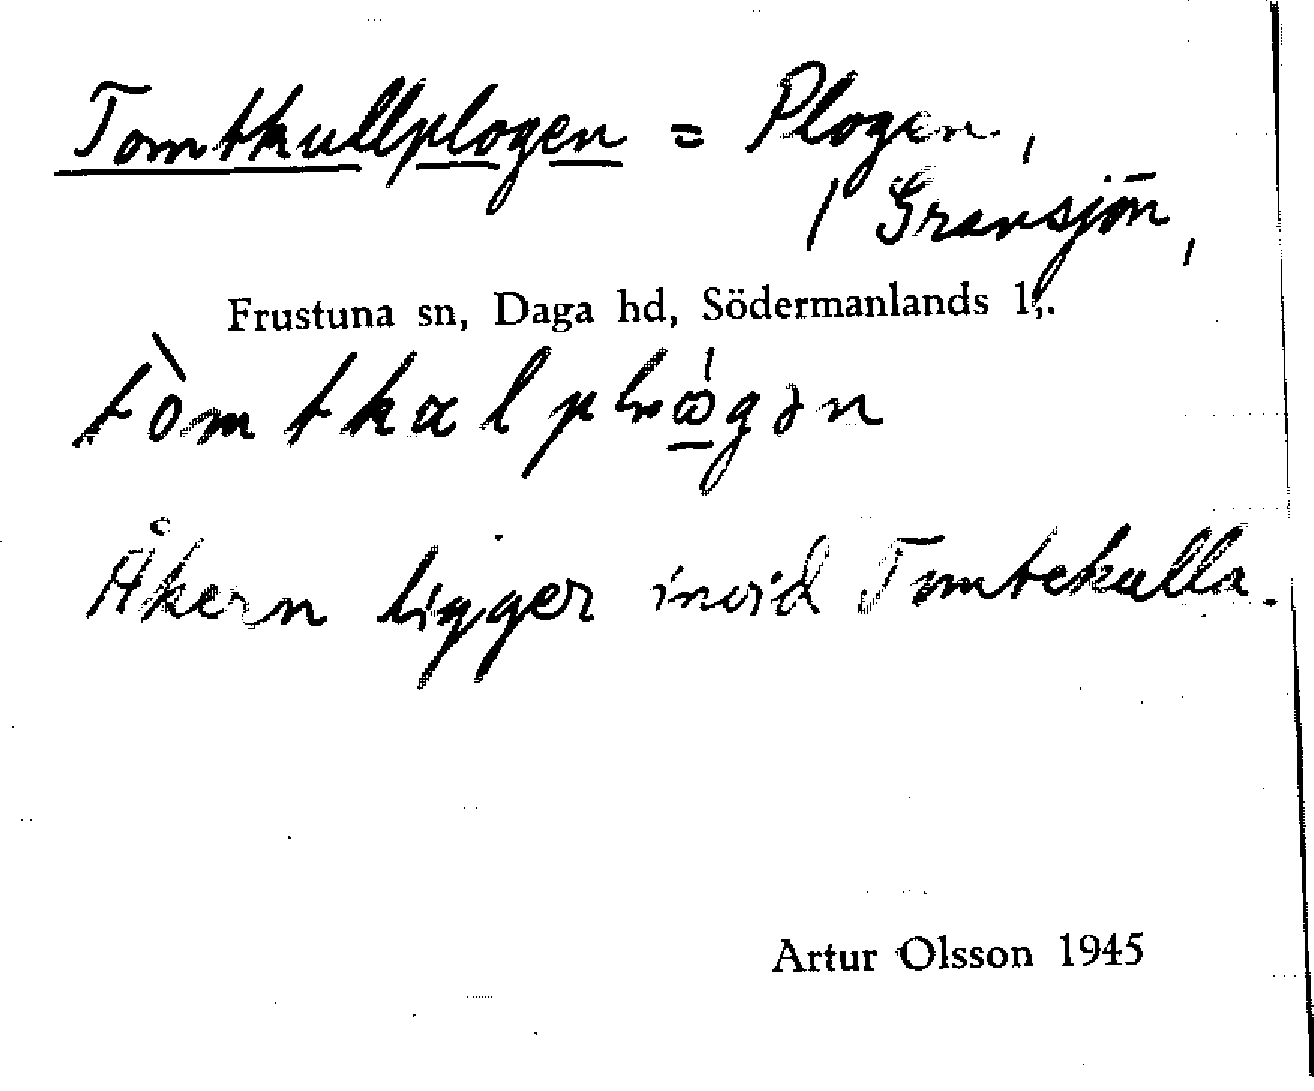 Tomtkullplogen = Plogen,
/ Gransjön,
Frustuna sn, Daga hd, Södermanlands l.
Åkern ligger invid Tomtekulla.
Artur Olsson 1945